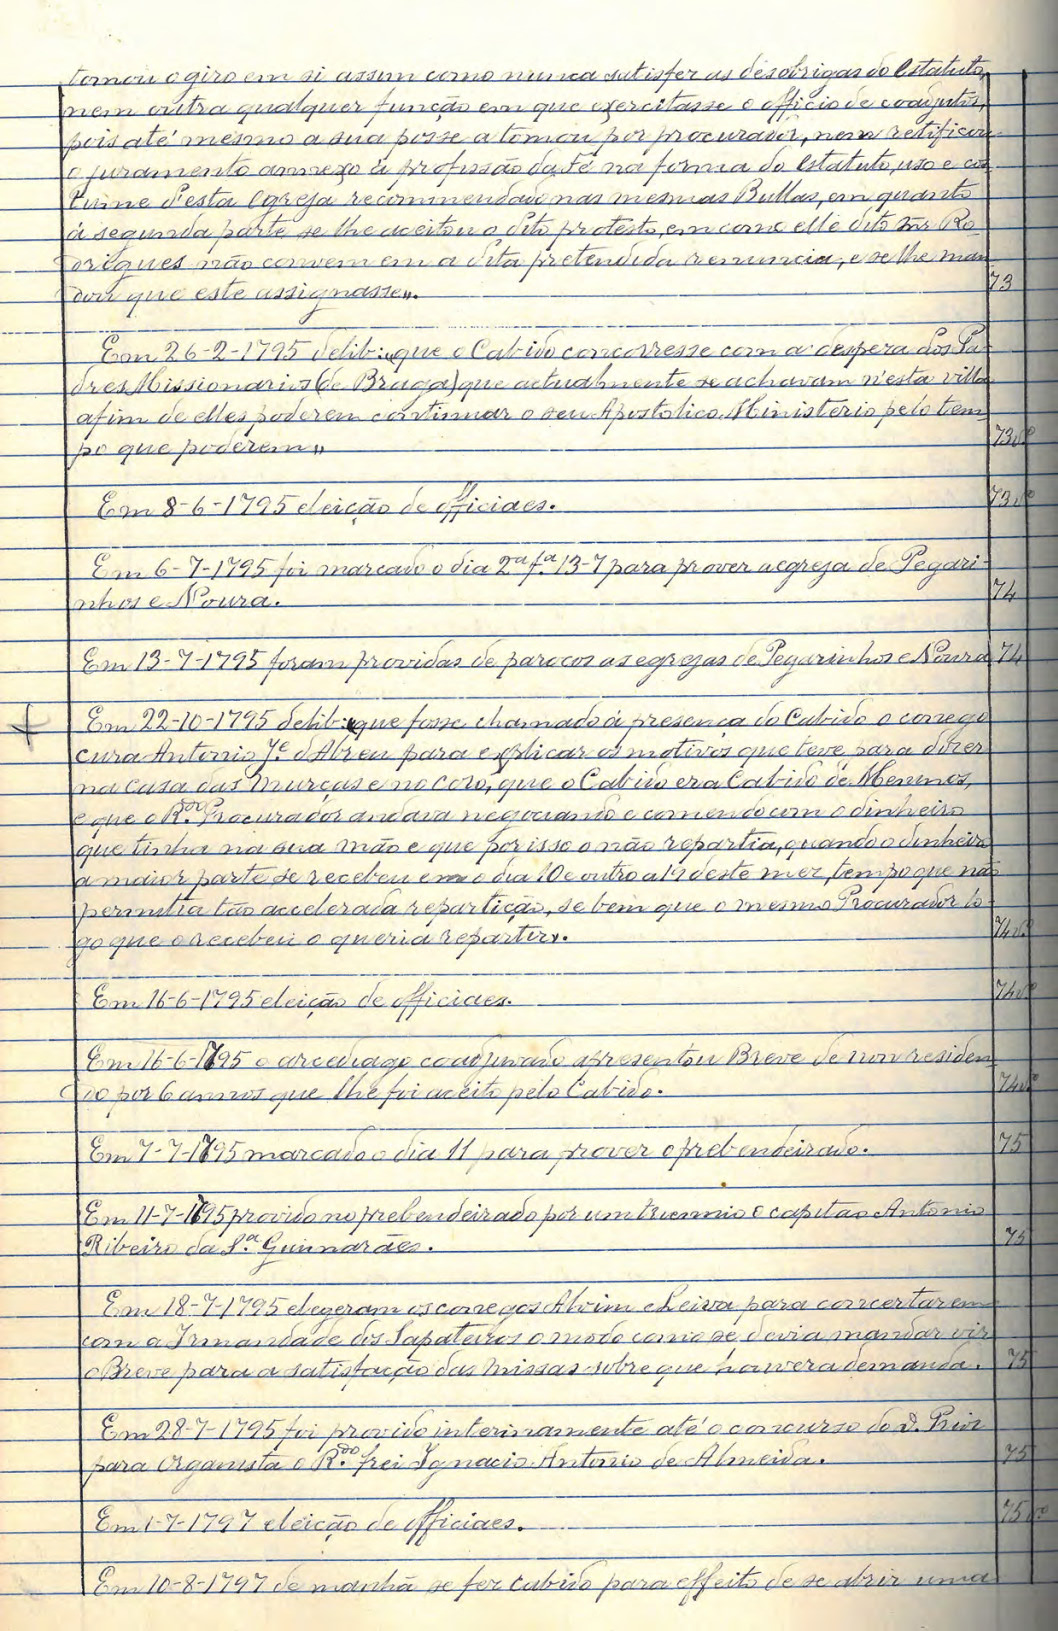 tomou o giro em si assim como nunca satisfez as desobrigas do Estatuto,
nem outra qualquer função em que exercitasse o officio de coadjutor,
pois até mesmo a sua posse a tomou por procurador, nem retificou
o juramento annexo á profissão da fé na forma do Estatuto, uso e cos
tume d'esta Egreja recommendado nas mesmas Bullas, em quanto
á segunda parte se lhe aceitou o dito protesto, em como elle dito Mr. Ro-
drigues não convem em a dita pretendida renuncia, e se lhe man
dou que este assignasse».
73
Em 26-2-1795 delib: «que o Cabido concorresse com a despeza dos Pa-
dres Missionarios (de Braga) que actualmente se achavam n'esta villa
afim de elles poderem continuar o seu Apostolico Ministerio pelo tem
po que poderem»
73vº
Em 8-6-1795 eleição de officiaes.
73vº
Em 6-7-1795 foi marcado o dia 2ª fª 13-7 para prover a egreja de Pegari-
nhos e Noura.
74
Em 13-7-1795 foram providas de parocos as egrejas de Pegarinhos e Noura
74
Em 22-10-1795 delib: «que fosse chamado á presença do Cabido o conego
cura Antonio Jé. d'Abreu para explicar os motivos que teve para dizer
na casa das Murças e no coro, que o Cabido era Cabido de Meninos,
e que o Rdo. Procurador andava negociando e comendo com o dinheiro
que tinha na sua mão e que por isso o não repartia, quando o dinheiro
a maior parte se recebeu em o dia 10 e outro a 19 deste mez, tempo que não
permitia tão accelerada repartição, se bem que o mesmo Procurador lo-
go que o recebeu o queria repartir».
74vº
Em 16-6-1795 eleição de officiaes.
74vº
Em 16-6-1795 o arcediago coadjuvado apresentou Breve de non residen
do por 6 annos que lhe foi aceito pelo Cabido.
74vº
Em 7-7-1795 marcado o dia 11 para prover o prebendeirado.
75
Em 11-7-1795 provido no prebendeirado por um triennio o capitao Antonio
Ribeiro da Sª Guimarães.
75
Em 18-7-1795 elegeram os conegos Alvim e Leiva para concertarem
com a Irmandade dos Sapateiros o modo como se devia mandar vir
o Breve para a satisfação das missas sobre que houvera demanda.
75
Em 28-7-1795 foi provido interinamente até o concurso do D. Prior
para Organista o Rdo. frei Ignacio Antonio de Almeida.
75
Em 1-7-1797 eleição de officiaes.
75vº
Em 10-8-1797 de manhã se fez cabido para effeito de se abrir uma